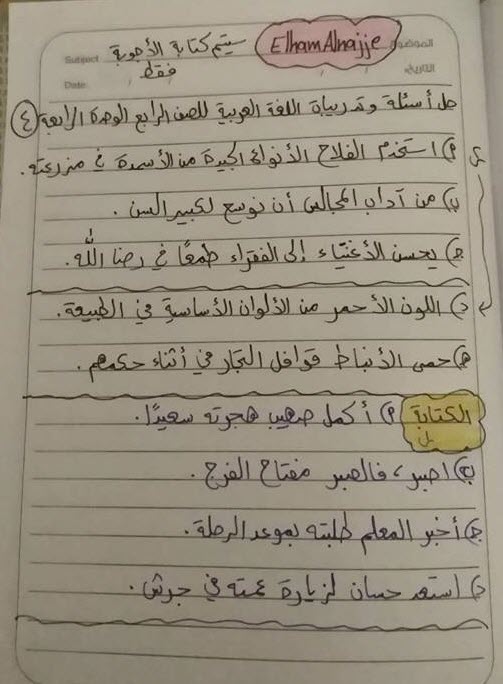 Elham Alnajje
الموضوع
Subject
سيتم كتابة الأجوبة
فقط
التاريخ
Date
حل أسئلة وتدريبات اللغة العربية للصف الرابع الوحدة الرابعة ٤
أ) استخدم الفلاح الأنواع الجيدة من الأسمدة في مزرعته.
ب) من آداب المجالس أن نوسع لكبير السن.
ج) يحسن الأغنياء إلى الفقراء طمعًا في رضا الله.
د) اللون الأحمر من الألوان الأساسية في الطبيعة.
هـ) حمى الأنباط قوافل التجار في أثناء حكمهم.
الكتابة أ) أكمل صهيب هجرته سعيدًا.
ب) اصبر، فالصبر مفتاح الفرج.
ج) أخبر المعلم طلبته بموعد الرحلة.
د) استعد حسان لزيارة عمته في جرش.